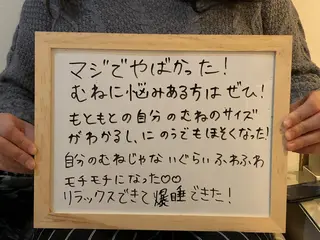 マジでやばかった!
むねに悩みある方はぜひ!
もともとの自分のむねのサイズ
がわかるし、にのうでもほそくなった!
自分のむねじゃないぐらいふわふわ
モチモチになった♡♡
リラックスできて爆睡できた!